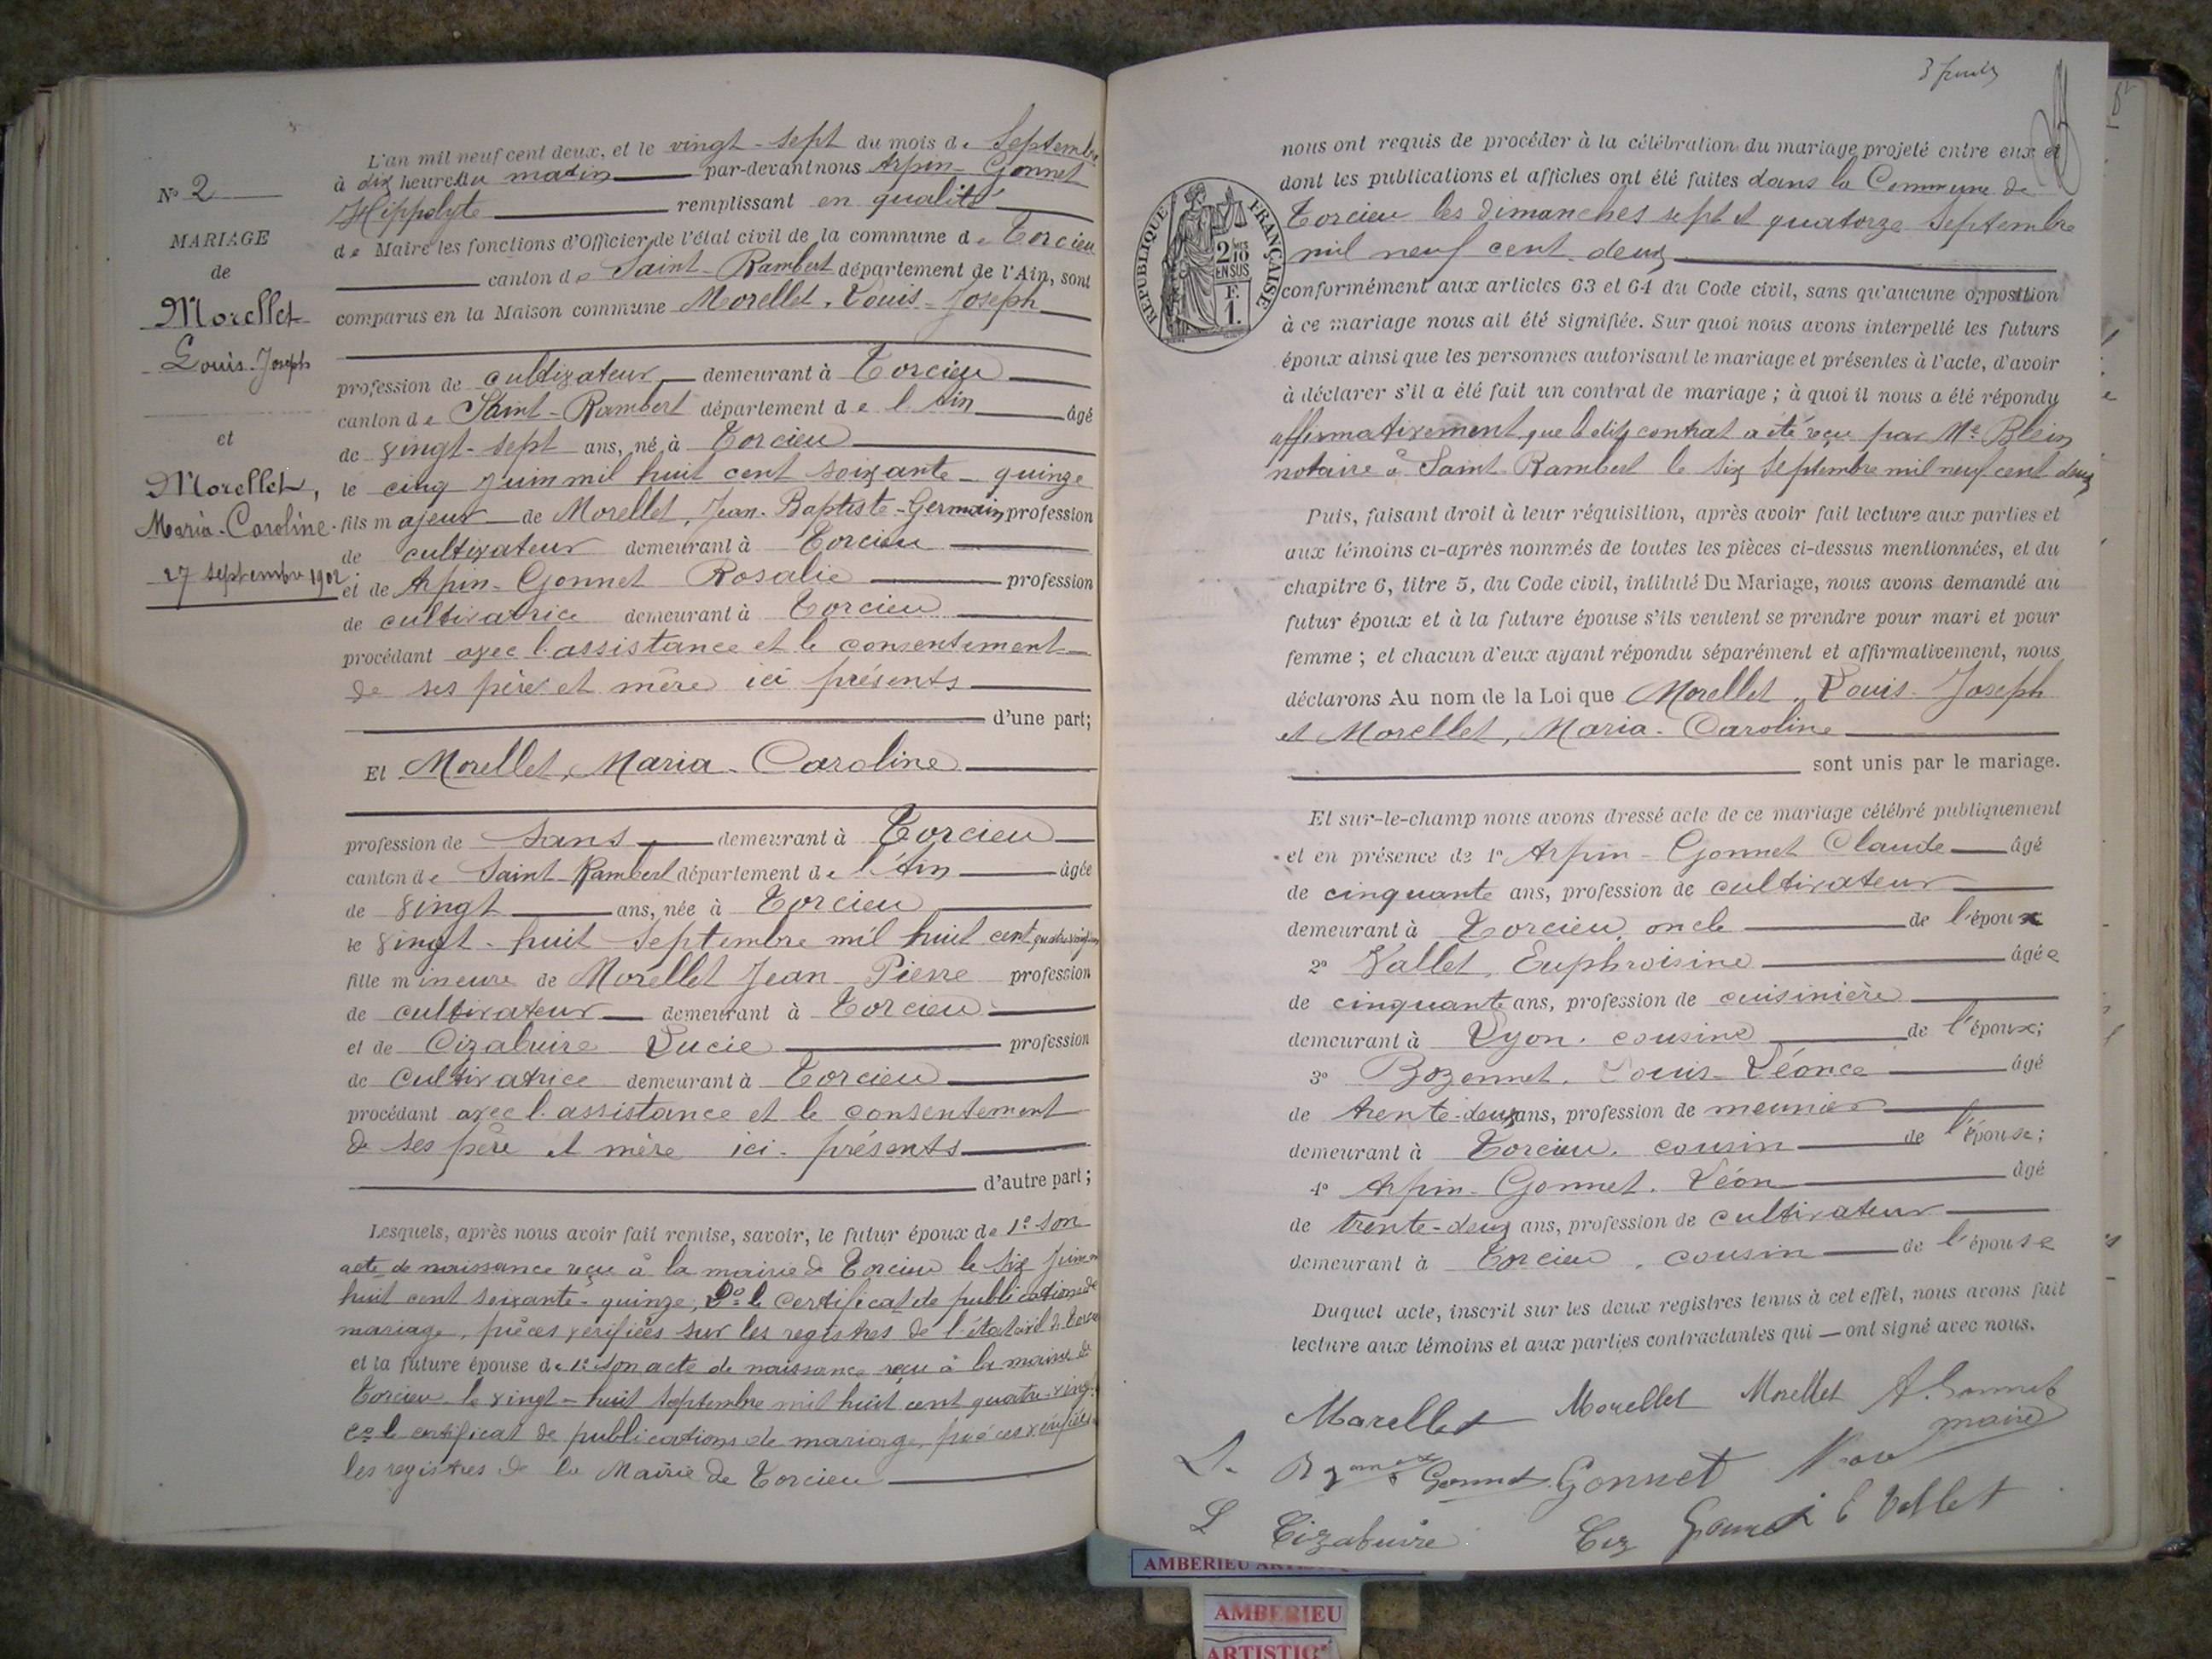 N° 2
MARIAGE
de
Morellet
Louis-Joseph
et
Morellet,
Maria-Caroline.
27 septembre 1902
L'an mil neuf cent deux, et le vingt-sept du mois de Septembre
à dix heures du matin par-devant nous Arpin-Gonnet
Hippolyte remplissant en qualité
de Maire les fonctions d'Officier de l'état civil de la commune de Torcieu
canton de Saint-Rambert département de l'Ain, sont
comparus en la Maison commune Morellet, Louis-Joseph
profession de cultivateur demeurant à Torcieu
canton de Saint-Rambert département de l'Ain âgé
de vingt-sept ans, né à Torcieu
le cinq juin mil huit cent soixante-quinze
fils majeur de Morellet, Jean-Baptiste-Germain profession
de cultivateur demeurant à Torcieu
et de Arpin-Gonnet Rosalie profession
de cultivatrice demeurant à Torcieu
procédant avec l'assistance et le consentement
de ses père et mère ici présents
d'une part;
Et Morellet, Maria-Caroline
profession de Sans demeurant à Torcieu
canton de Saint-Rambert département de l'Ain âgée
de vingt ans, née à Torcieu
le vingt-huit septembre mil huit cent
fille mineure de Morellet Jean Pierre profession
de cultivateur demeurant à Torcieu
et de Cizabuire Lucie profession
de cultivatrice demeurant à Torcieu
procédant avec l'assistance et le consentement
de ses père et mère ici-présents
d'autre part;
Lesquels, après nous avoir fait remise, savoir, le futur époux de 1° son
acte de naissance reçu à la mairie de Torcieu le six juin
huit cent soixante-quinze, 2° le certificat de publications de
mariage, pièces vérifiées sur les registres de l'état civil de Torcieu
et la future épouse de 1° son acte de naissance reçu à la mairie de
Torcieu le vingt-huit septembre mil huit cent quatre-vingt
2° le certificat de publications de mariage, pièces vérifiées
les registres de la Mairie de Torcieu
nous ont requis de procéder à la célébration du mariage projeté entre eux et
dont les publications et affiches ont été faites dans la Commune de
Torcieu les dimanches sept et quatorze Septembre
mil neuf cent deux
RÉPUBLIQUE FRANÇAISE
2/10
EN SUS
F.
1.
conformément aux articles 63 et 64 du Code civil, sans qu'aucune opposition
à ce mariage nous ait été signifiée. Sur quoi nous avons interpellé les futurs
époux ainsi que les personnes autorisant le mariage et présentes à l'acte, d'avoir
à déclarer s'il a été fait un contrat de mariage; à quoi il nous a été répondu
affirmativement, que le dit contrat a été reçu par Me Blein
notaire à Saint-Rambert le six septembre mil neuf cent deux
Puis, faisant droit à leur réquisition, après avoir fait lecture aux parties et
aux témoins ci-après nommés de toutes les pièces ci-dessus mentionnées, et du
chapitre 6, titre 5, du Code civil, intitulé Du Mariage, nous avons demandé au
futur époux et à la future épouse s'ils veulent se prendre pour mari et pour
femme; et chacun d'eux ayant répondu séparément et affirmativement, nous
déclarons Au nom de la Loi que Morellet, Louis-Joseph
et Morellet, Maria-Caroline
sont unis par le mariage.
Et sur-le-champ nous avons dressé acte de ce mariage célébré publiquement
et en présence de 1° Arpin-Gonnet Claude âgé
de cinquante ans, profession de cultivateur
demeurant à Torcieu, oncle de l'époux
2° Vallet, Euphroisine âgée
de cinquante ans, profession de cuisinière
demeurant à Lyon, cousine de l'époux;
3° Bozonnet, Louis-Léonce âgé
de trente-deux ans, profession de meunier
demeurant à Torcieu, cousin de l'épouse;
4° Arpin-Gonnet, Léon âgé
de trente-deux ans, profession de cultivateur
demeurant à Torcieu, cousin de l'épouse
Duquel acte, inscrit sur les deux registres tenus à cet effet, nous avons fait
lecture aux témoins et aux parties contractantes qui ont signé avec nous.
Morellet Morellet Morellet A. Gonnet
maire
Gonnet Gonnet
Cizabuire E Vallet
AMBERIEU
AMBERIEU
ARTISTIQ